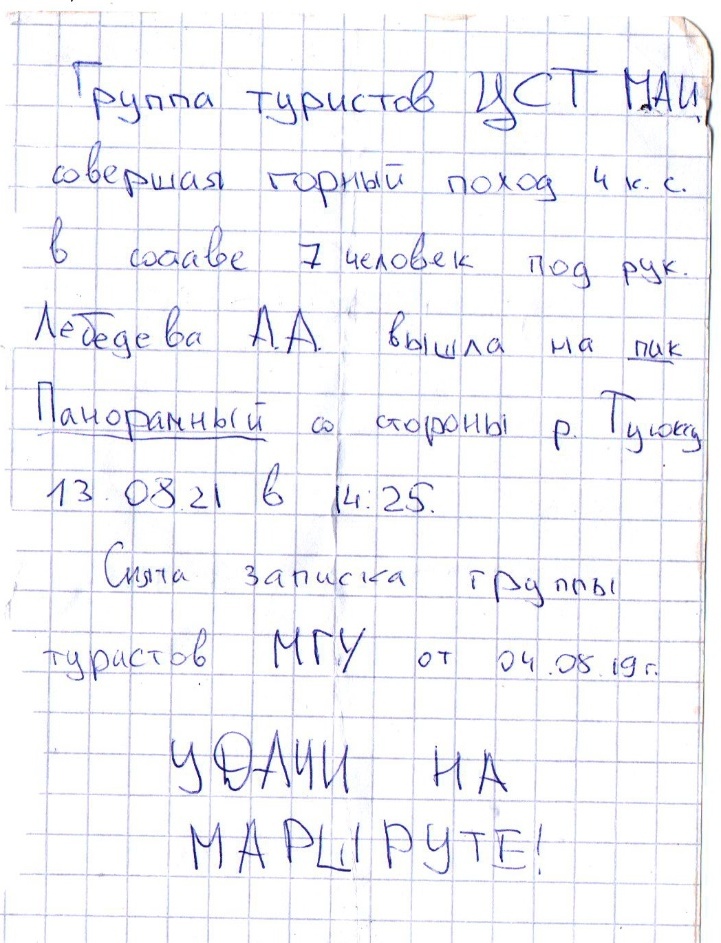 Группа туристов ЦСТ МАИ
совершая горный поход 4 к.с.
в составе 7 человек под рук.
Лебедева А.А. вышла на пик
Панорамный со стороны р. Туюксу
13.08.21 в 14:25.
Снята записка группы
туристов МГУ от 04.08.19г.
УДАЧИ НА
МАРШРУТЕ!